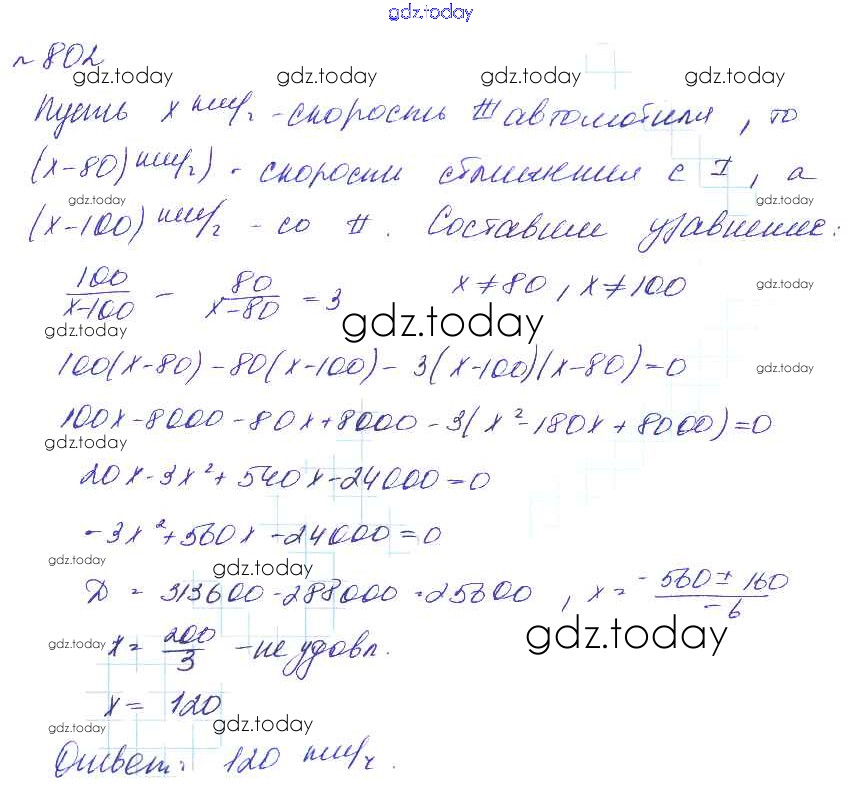 gdz.today
№ 802
gdz.today gdz.today gdz.today
Пусть x км/ч - скорость III автомобиля, то
(x-80) км/ч) - скорости сближения с I, а
gdz.today gdz.today
(x-100) км/ч - со II. Составим уравнение:
100/(x-100) - 80/(x-80) = 3 x≠80, x≠100
gdz.today
gdz.today gdz.today
100(x-80) - 80(x-100) - 3(x-100)(x-80) = 0
gdz.today
100x - 8000 - 80x + 8000 - 3(x² - 180x + 8000) = 0
gdz.today gdz.today
20x - 3x² + 540x - 24000 = 0
-3x² + 560x - 24000 = 0
gdz.today gdz.today
Д = 313600 - 288000 = 25600, x = (-560 ± 160)/(-6)
gdz.today gdz.today
x = 200/3 - не удовл.
x = 120
gdz.today gdz.today
Ответ: 120 км/ч.